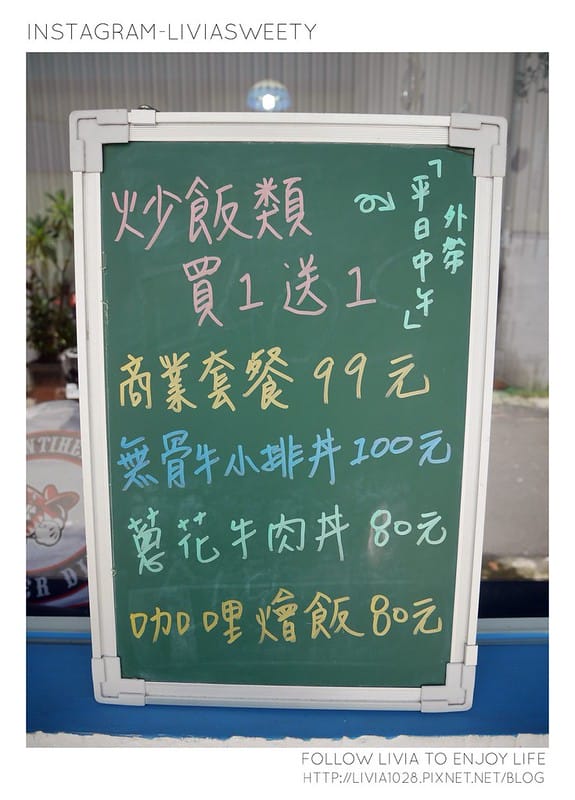 INSTAGRAM-LIVIASWEETY
炒飯類
買1送1
「平日中午」
外帶
商業套餐 99元
無骨牛小排丼 100元
蔥花牛肉丼 80元
咖哩燴飯 80元
FOLLOW LIVIA TO ENJOY LIFE
HTTP://LIVIA1028.PIXNET.NET/BLOG